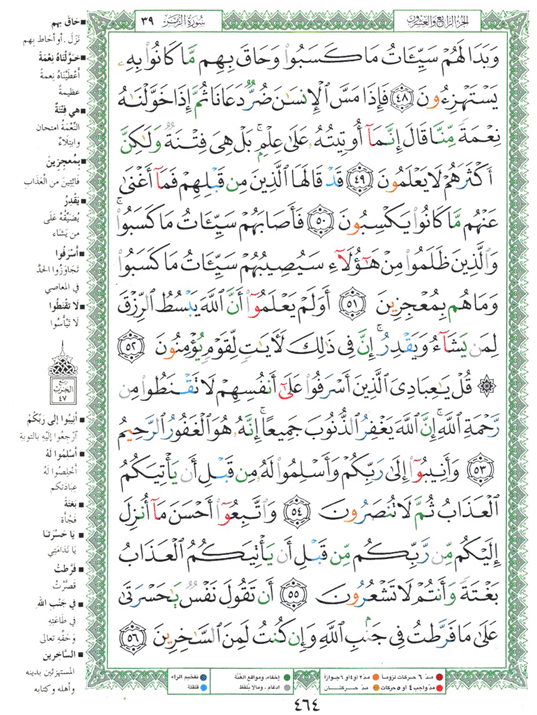 الجزء الرابع والعشرون
سورة الزمر
٣٩
وَبَدَا لَهُمْ سَيِّـَٔاتُ مَا كَسَبُوا۟ وَحَاقَ بِهِم مَّا كَانُوا۟ بِهِۦ
يَسْتَهْزِءُونَ ٤٨ فَإِذَا مَسَّ ٱلْإِنسَـٰنَ ضُرٌّ دَعَانَا ثُمَّ إِذَا خَوَّلْنَـٰهُ
نِعْمَةً مِّنَّا قَالَ إِنَّمَآ أُوتِيتُهُۥ عَلَىٰ عِلْمٍۭ ۚ بَلْ هِىَ فِتْنَةٌ وَلَـٰكِنَّ
أَكْثَرَهُمْ لَا يَعْلَمُونَ ٤٩ قَدْ قَالَهَا ٱلَّذِينَ مِن قَبْلِهِمْ فَمَآ أَغْنَىٰ
عَنْهُم مَّا كَانُوا۟ يَكْسِبُونَ ٥٠ فَأَصَابَهُمْ سَيِّـَٔاتُ مَا كَسَبُوا۟ ۚ
وَٱلَّذِينَ ظَلَمُوا۟ مِنْ هَـٰٓؤُلَآءِ سَيُصِيبُهُمْ سَيِّـَٔاتُ مَا كَسَبُوا۟
وَمَا هُم بِمُعْجِزِينَ ٥١ أَوَلَمْ يَعْلَمُوٓا۟ أَنَّ ٱللَّهَ يَبْسُطُ ٱلرِّزْقَ
لِمَن يَشَآءُ وَيَقْدِرُ ۚ إِنَّ فِى ذَٰلِكَ لَـَٔايَـٰتٍ لِّقَوْمٍ يُؤْمِنُونَ ٥٢
۞ قُلْ يَـٰعِبَادِىَ ٱلَّذِينَ أَسْرَفُوا۟ عَلَىٰٓ أَنفُسِهِمْ لَا تَقْنَطُوا۟ مِن
رَّحْمَةِ ٱللَّهِ ۚ إِنَّ ٱللَّهَ يَغْفِرُ ٱلذُّنُوبَ جَمِيعًا ۚ إِنَّهُۥ هُوَ ٱلْغَفُورُ ٱلرَّحِيمُ
٥٣ وَأَنِيبُوٓا۟ إِلَىٰ رَبِّكُمْ وَأَسْلِمُوا۟ لَهُۥ مِن قَبْلِ أَن يَأْتِيَكُمُ
ٱلْعَذَابُ ثُمَّ لَا تُنصَرُونَ ٥٤ وَٱتَّبِعُوٓا۟ أَحْسَنَ مَآ أُنزِلَ
إِلَيْكُم مِّن رَّبِّكُم مِّن قَبْلِ أَن يَأْتِيَكُمُ ٱلْعَذَابُ
بَغْتَةً وَأَنتُمْ لَا تَشْعُرُونَ ٥٥ أَن تَقُولَ نَفْسٌ يَـٰحَسْرَتَىٰ
عَلَىٰ مَا فَرَّطتُ فِى جَنۢبِ ٱللَّهِ وَإِن كُنتُ لَمِنَ ٱلسَّـٰخِرِينَ ٥٦
■ حَاقَ بهم
نَزَلَ . أو أحاط بِهم
■ خوّلناهُ نِعْمَةً
أعْطَيْناهُ نِعمةً
عظيمة
■ هيَ فتنةٌ
النِّعْمَةُ امتحان
وابتلاءٌ
■ بمُعجِزينَ
فائِتِينَ من العَذاب
■ يَقْدِرُ
يُضَيِّقُهُ عَلَى
من يَشاء
■ أسْرَفُوا
تجَاوَزُوا الحَدَّ
في المعاصي
■ لا تَقْنَطُوا
لا تَيْأَسُوا
الحزب
٤٧
■ أنِيبُوا إلى ربِّكُمْ
ارْجِعُوا إليْهِ بالتَّوبة
■ أسْلِمُوا لهُ
أخْلِصُوا لَهُ
عبادَتكم
■ بَغْتَةً
فَجْأةً
■ يا حَسْرَتَا
يَا نَدَامَتِي
■ فَرَّطْتُ
قَصَّرْتُ
■ في جَنْبِ الله
في طَاعَتِهِ
وحَقِّهِ تعالى
■ السَّاخِرين
المستهزئين بدينه
وأهله وكتابه
مدّ ٦ حركات لزوماً
مدّ ٢ أو ٤ أو ٦ جوازاً
إخفاء، ومواقع الغُنَّة
تفخيم الراء
مدّ واجب ٤ أو ٥ حركات
مدّ حركتان
إدغام، وما لا يُلفظ
قلقلة
٤٦٤